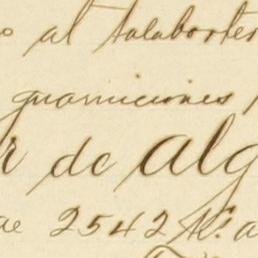 o al talabarter
guarniciones
r de alg
ae 2542 Ks. a